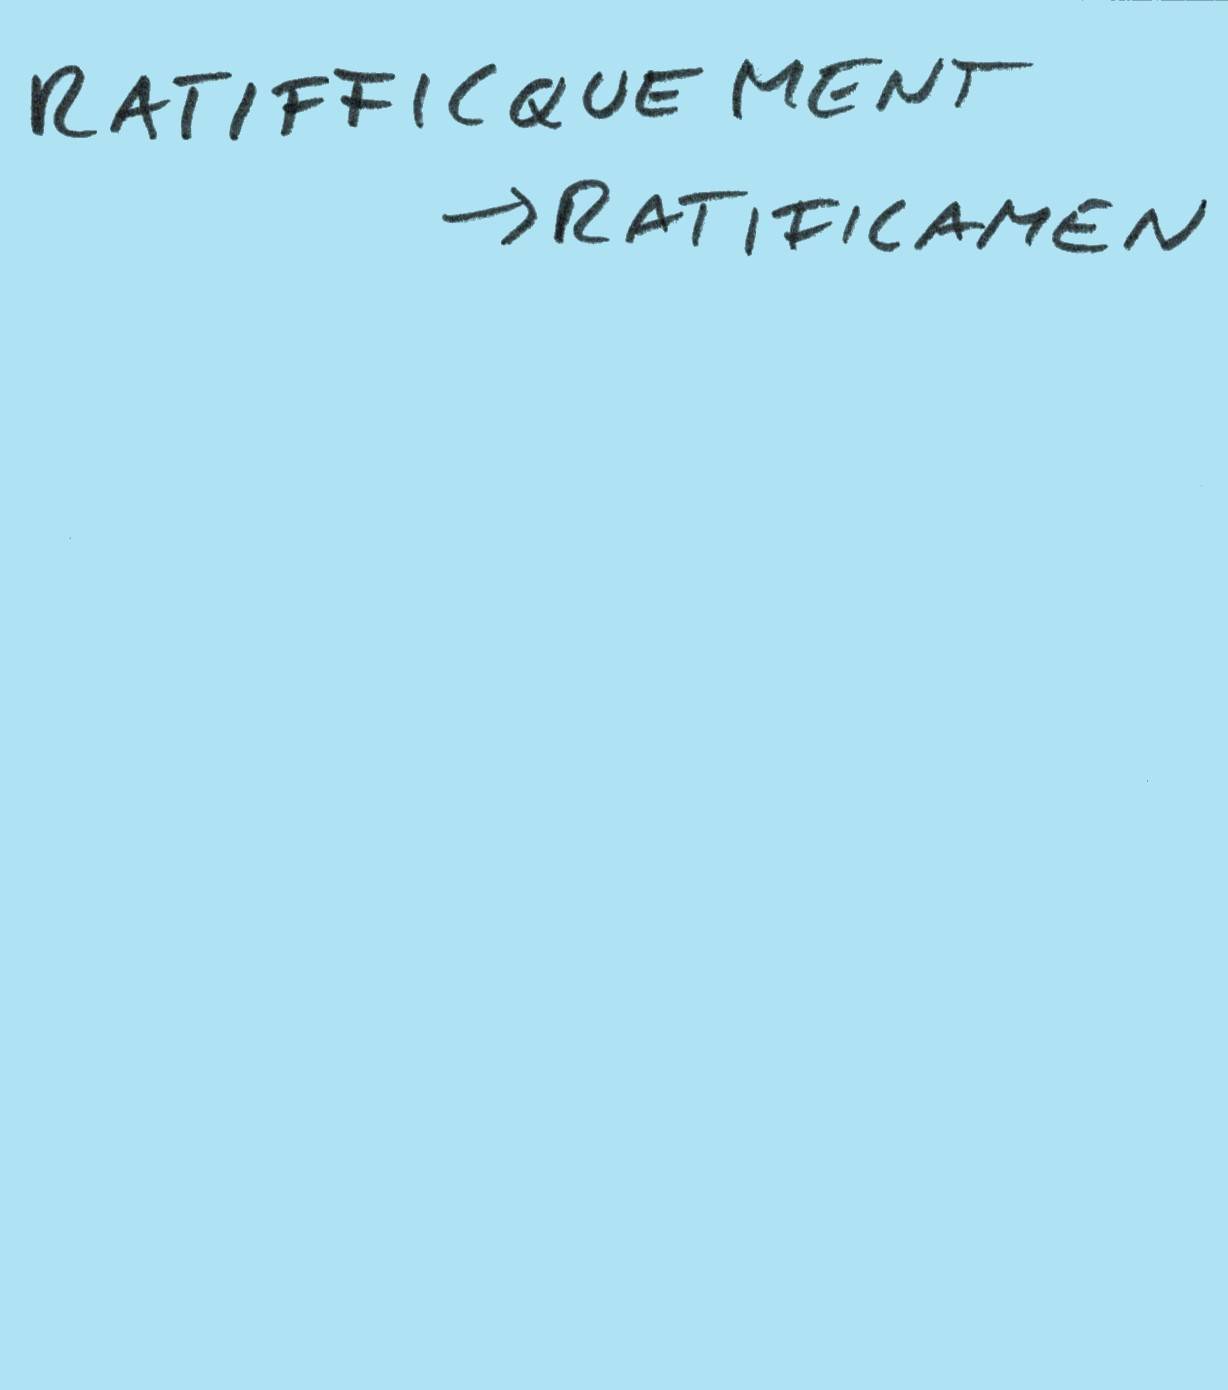 RATIFFICQUEMENT
→RATIFICAMEN